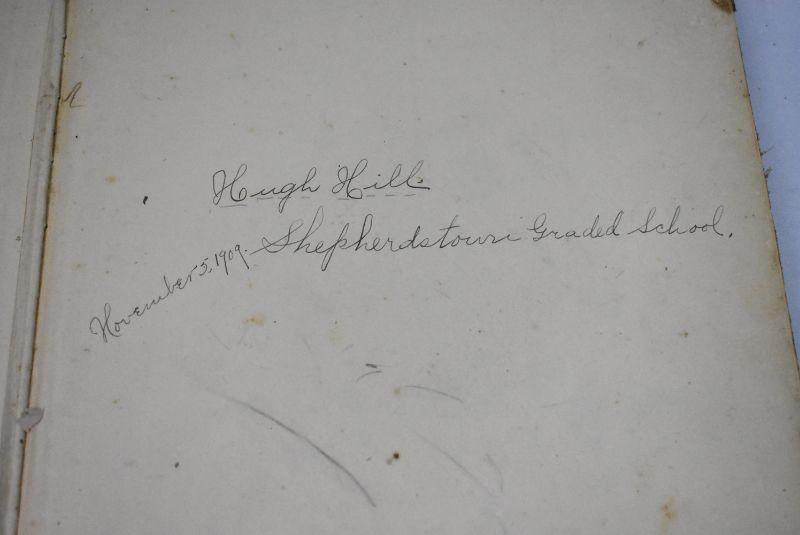 Hugh Hill.
Shepherdstown Graded School.
November 5, 1909.